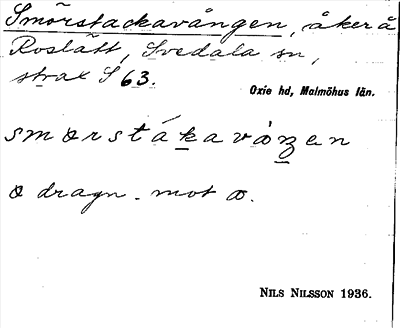 Smörstackavången, åker å
Roslätt, Svedala sn,
strax S 63.
Oxie hd, Malmöhus län.
smørstákavåŋen
ø dragn. mot œ.
NILS NILSSON 1936.